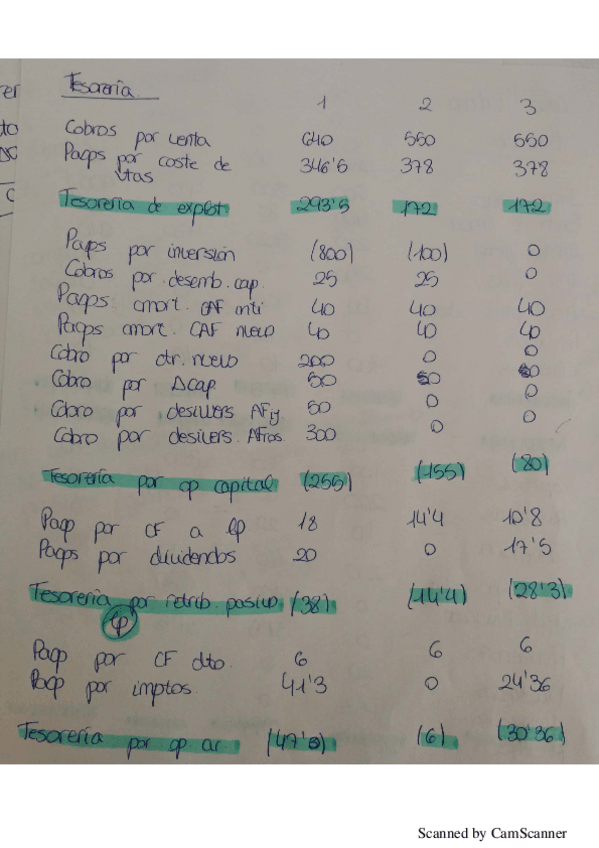 rer
to
so
C
Tesorería
1 2 3
Cobros por venta 640 550 550
Pagos por coste de vtas 346'5 378 378
Tesorería de explot 293'5 172 172
Pagos por inversión (800) (100) 0
Cobros por desemb. cap. 25 25 0
Pagos amort. CAF inti 40 40 40
Pagos amort. CAF nuevo 40 40 40
Cobro por ctr. nuevo 200 0 0
Cobro por Δcap 50 0 0
Cobro por desinvers AFij 50 0 0
Cobro por desinvers. AFros 300 0 0
Tesorería por op capital (255) (155) (80)
Pago por CF a lp 18 14'4 10'8
Pagos por dividendos 20 0 17'5
Tesorería por retrib. pasivo (38) (14'4) (28'3)
lp
Pago por CF dto. 6 6 6
Pago por imptos. 41'3 0 24'36
Tesorería por op. ac. (47'3) (6) (30'36)
Scanned by CamScanner